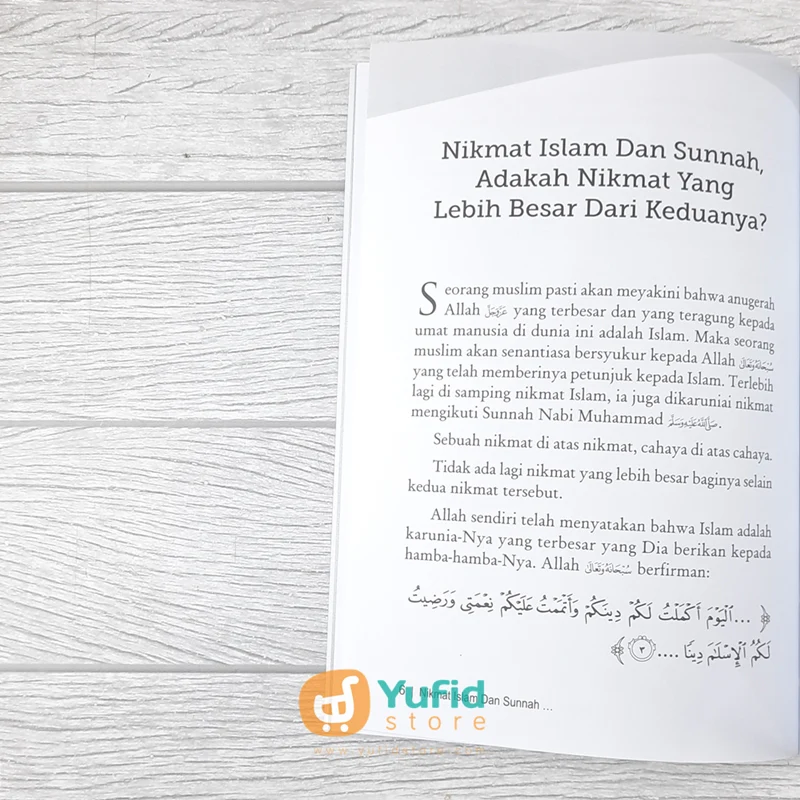 Nikmat Islam Dan Sunnah,
Adakah Nikmat Yang
Lebih Besar Dari Keduanya?
Seorang muslim pasti akan meyakini bahwa anugerah
Allah عَزَّوَجَلَّ yang terbesar dan yang teragung kepada
umat manusia di dunia ini adalah Islam. Maka seorang
muslim akan senantiasa bersyukur kepada Allah سُبْحَانَهُ وَتَعَالَى
yang telah memberinya petunjuk kepada Islam. Terlebih
lagi di samping nikmat Islam, ia juga dikaruniai nikmat
mengikuti Sunnah Nabi Muhammad صَلَّى اللَّهُ عَلَيْهِ وَسَلَّمَ.
Sebuah nikmat di atas nikmat, cahaya di atas cahaya.
Tidak ada lagi nikmat yang lebih besar baginya selain
kedua nikmat tersebut.
Allah sendiri telah menyatakan bahwa Islam adalah
karunia-Nya yang terbesar yang Dia berikan kepada
hamba-hamba-Nya. Allah سُبْحَانَهُ وَتَعَالَى berfirman:
﴿ ... ٱلْيَوْمَ أَكْمَلْتُ لَكُمْ دِينَكُمْ وَأَتْمَمْتُ عَلَيْكُمْ نِعْمَتِى وَرَضِيتُ
لَكُمُ ٱلْإِسْلَٰمَ دِينًا .... ٣ ﴾
6 Nikmat Islam Dan Sunnah ...
Yufid
store